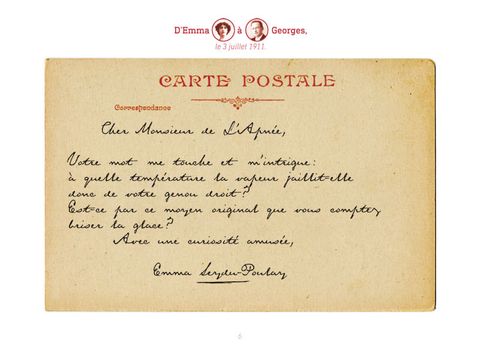 D'Emma à Georges,
le 3 juillet 1911.
CARTE POSTALE
Correspondance
Cher Monsieur de L'Apnée,
Votre mot me touche et m'intrigue :
à quelle température la vapeur jaillit-elle
donc de votre genou droit ?
Est-ce par ce moyen original que vous comptez
briser la glace ?
Avec une curiosité amusée,
Emma
6